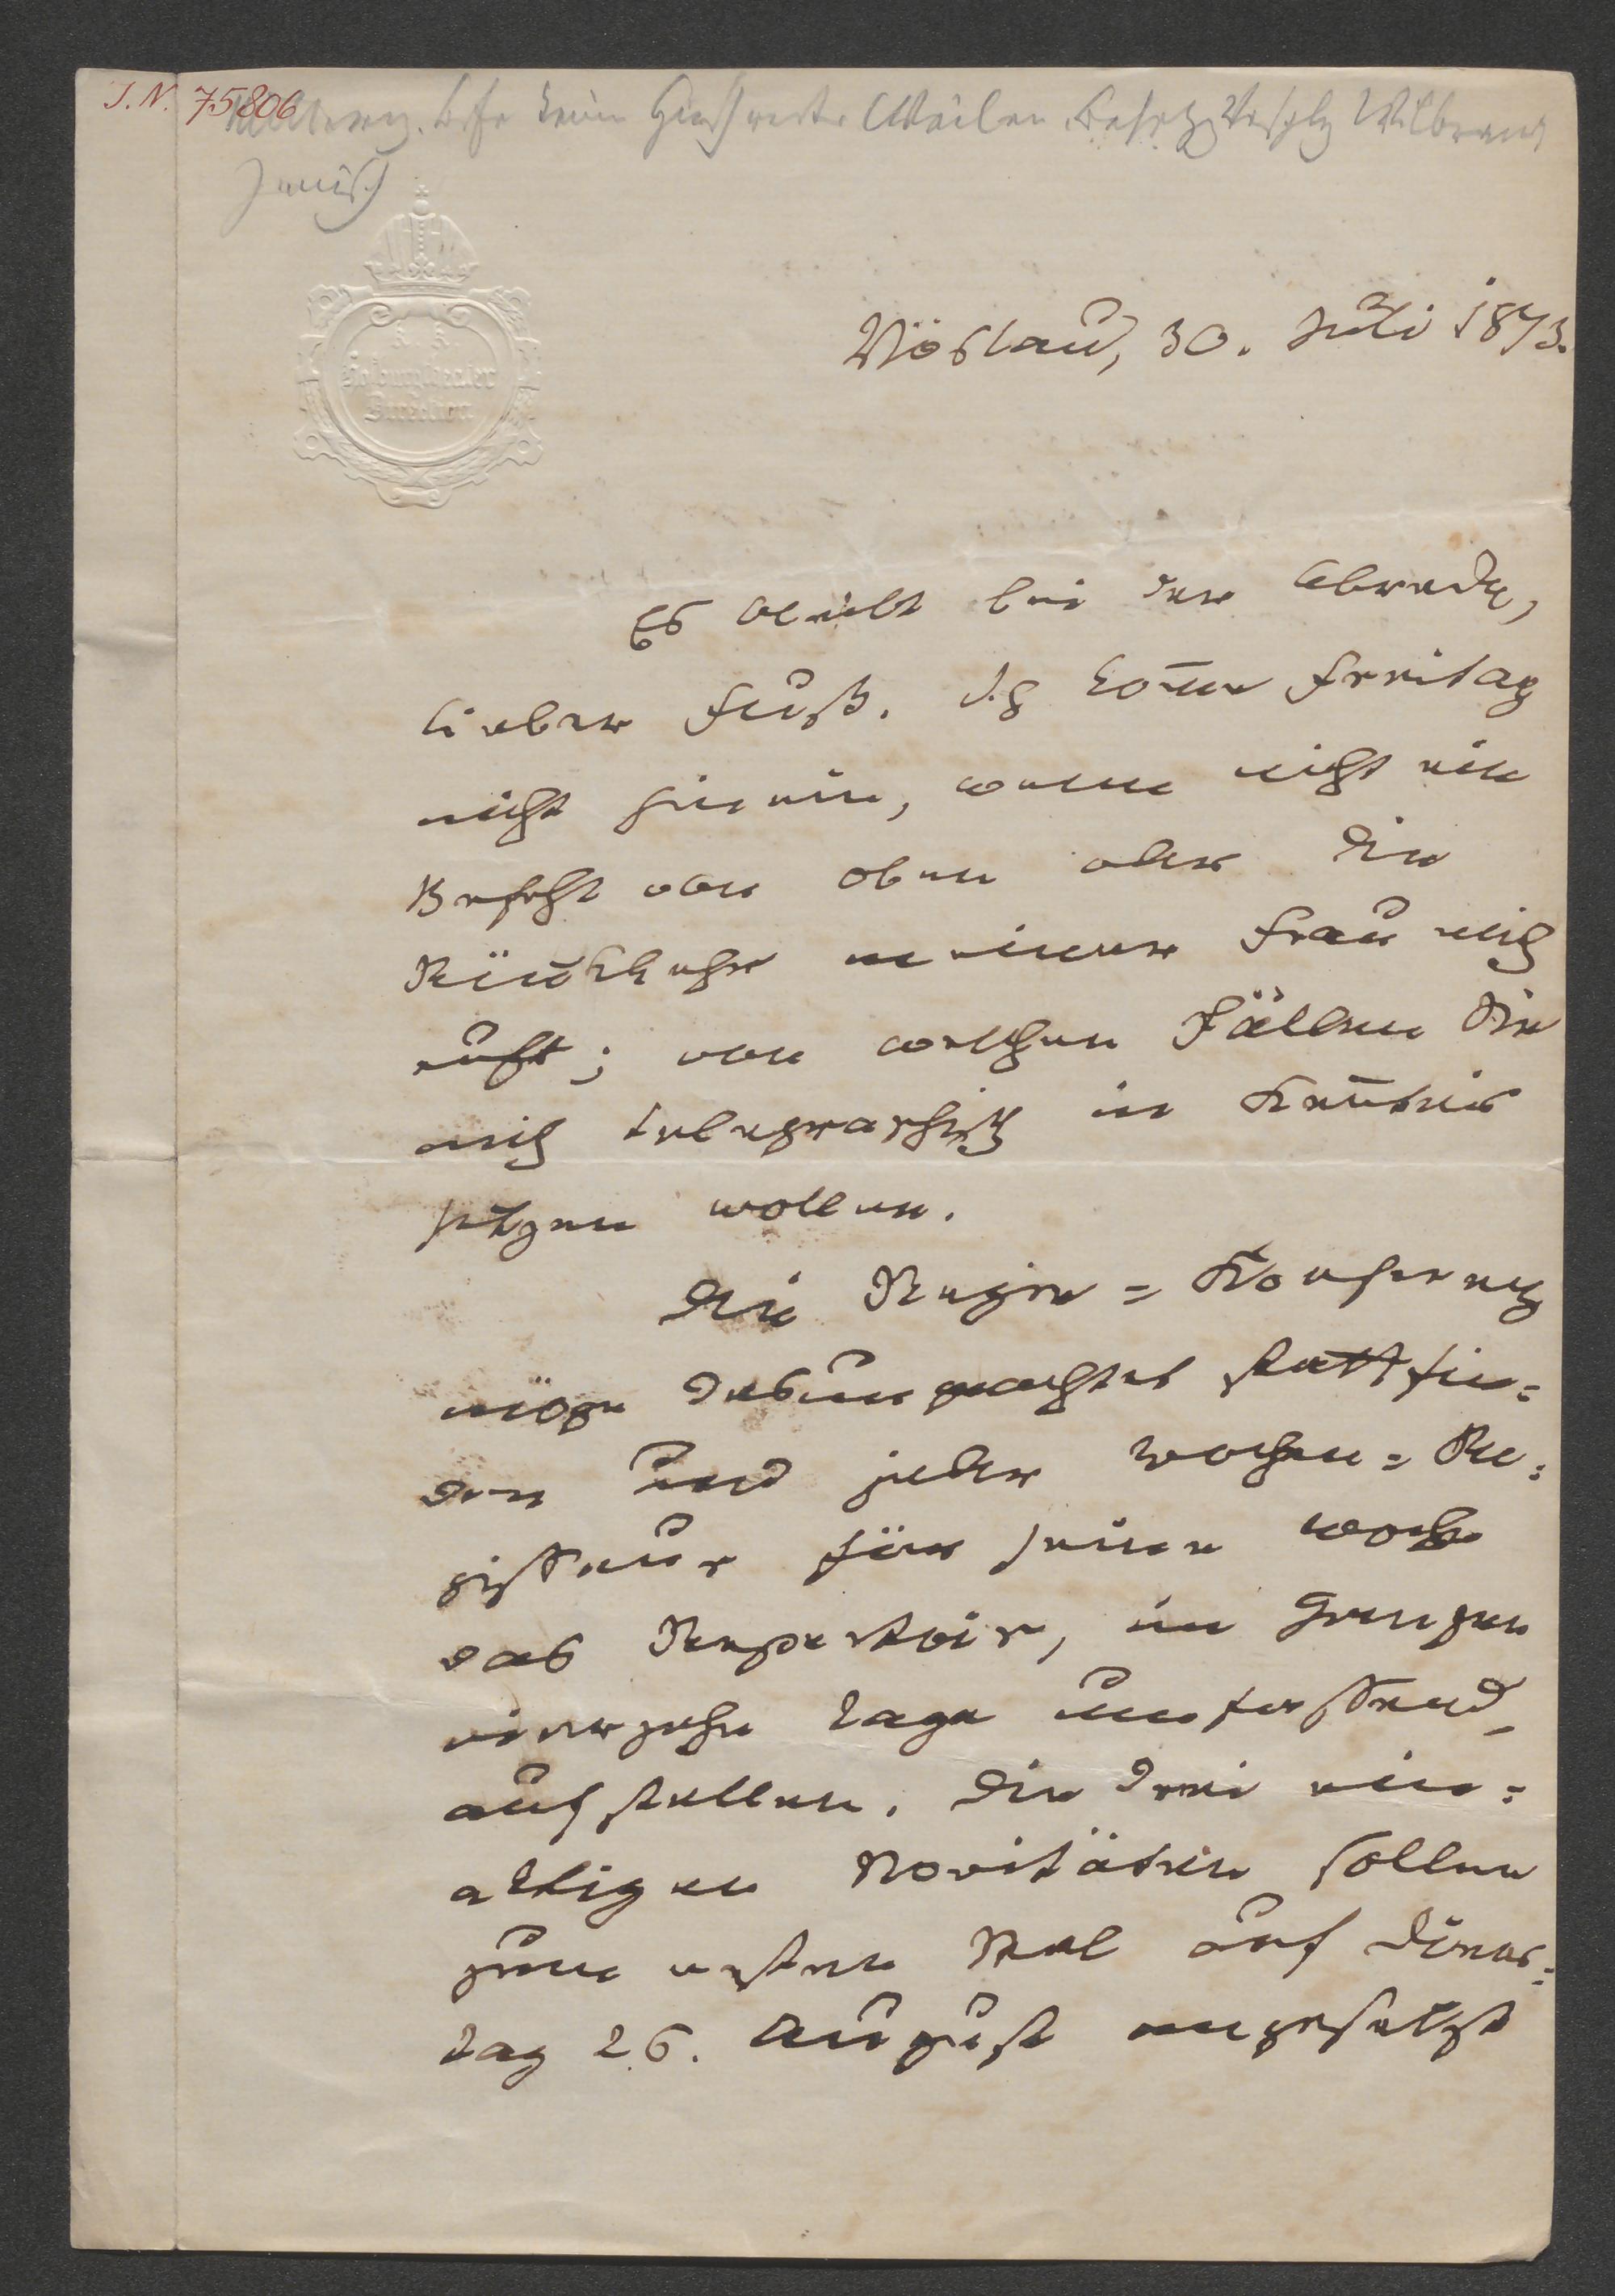 J. N. 75806
Weilen Wilbrand
K. K.
Hofburgtheater
Direction
Vöslau, 30. Juli 1873.
Es bleibt bei der Abrede,
lieber Fuß. Ich kom̅e Freitag
nicht hinein, wenn nicht ein
Befehl von oben oder die
Rückkehr meiner Frau mich
ruft; von welchen Fällen Sie
mich telegraphisch in Ken̅tnis
setzen wollen.
Die Regie=Konferenz
möge desungeachtet stattfin=
den und jeder Wochen=Re=
gisseur für seine Woche
das Repertoir, im Ganzen
vierzehn Tage umfassend,
aufstellen. Die drei ein=
aktigen Novitäten sollen
zum ersten Mal auf Diens=
tag 26. August angesetzt